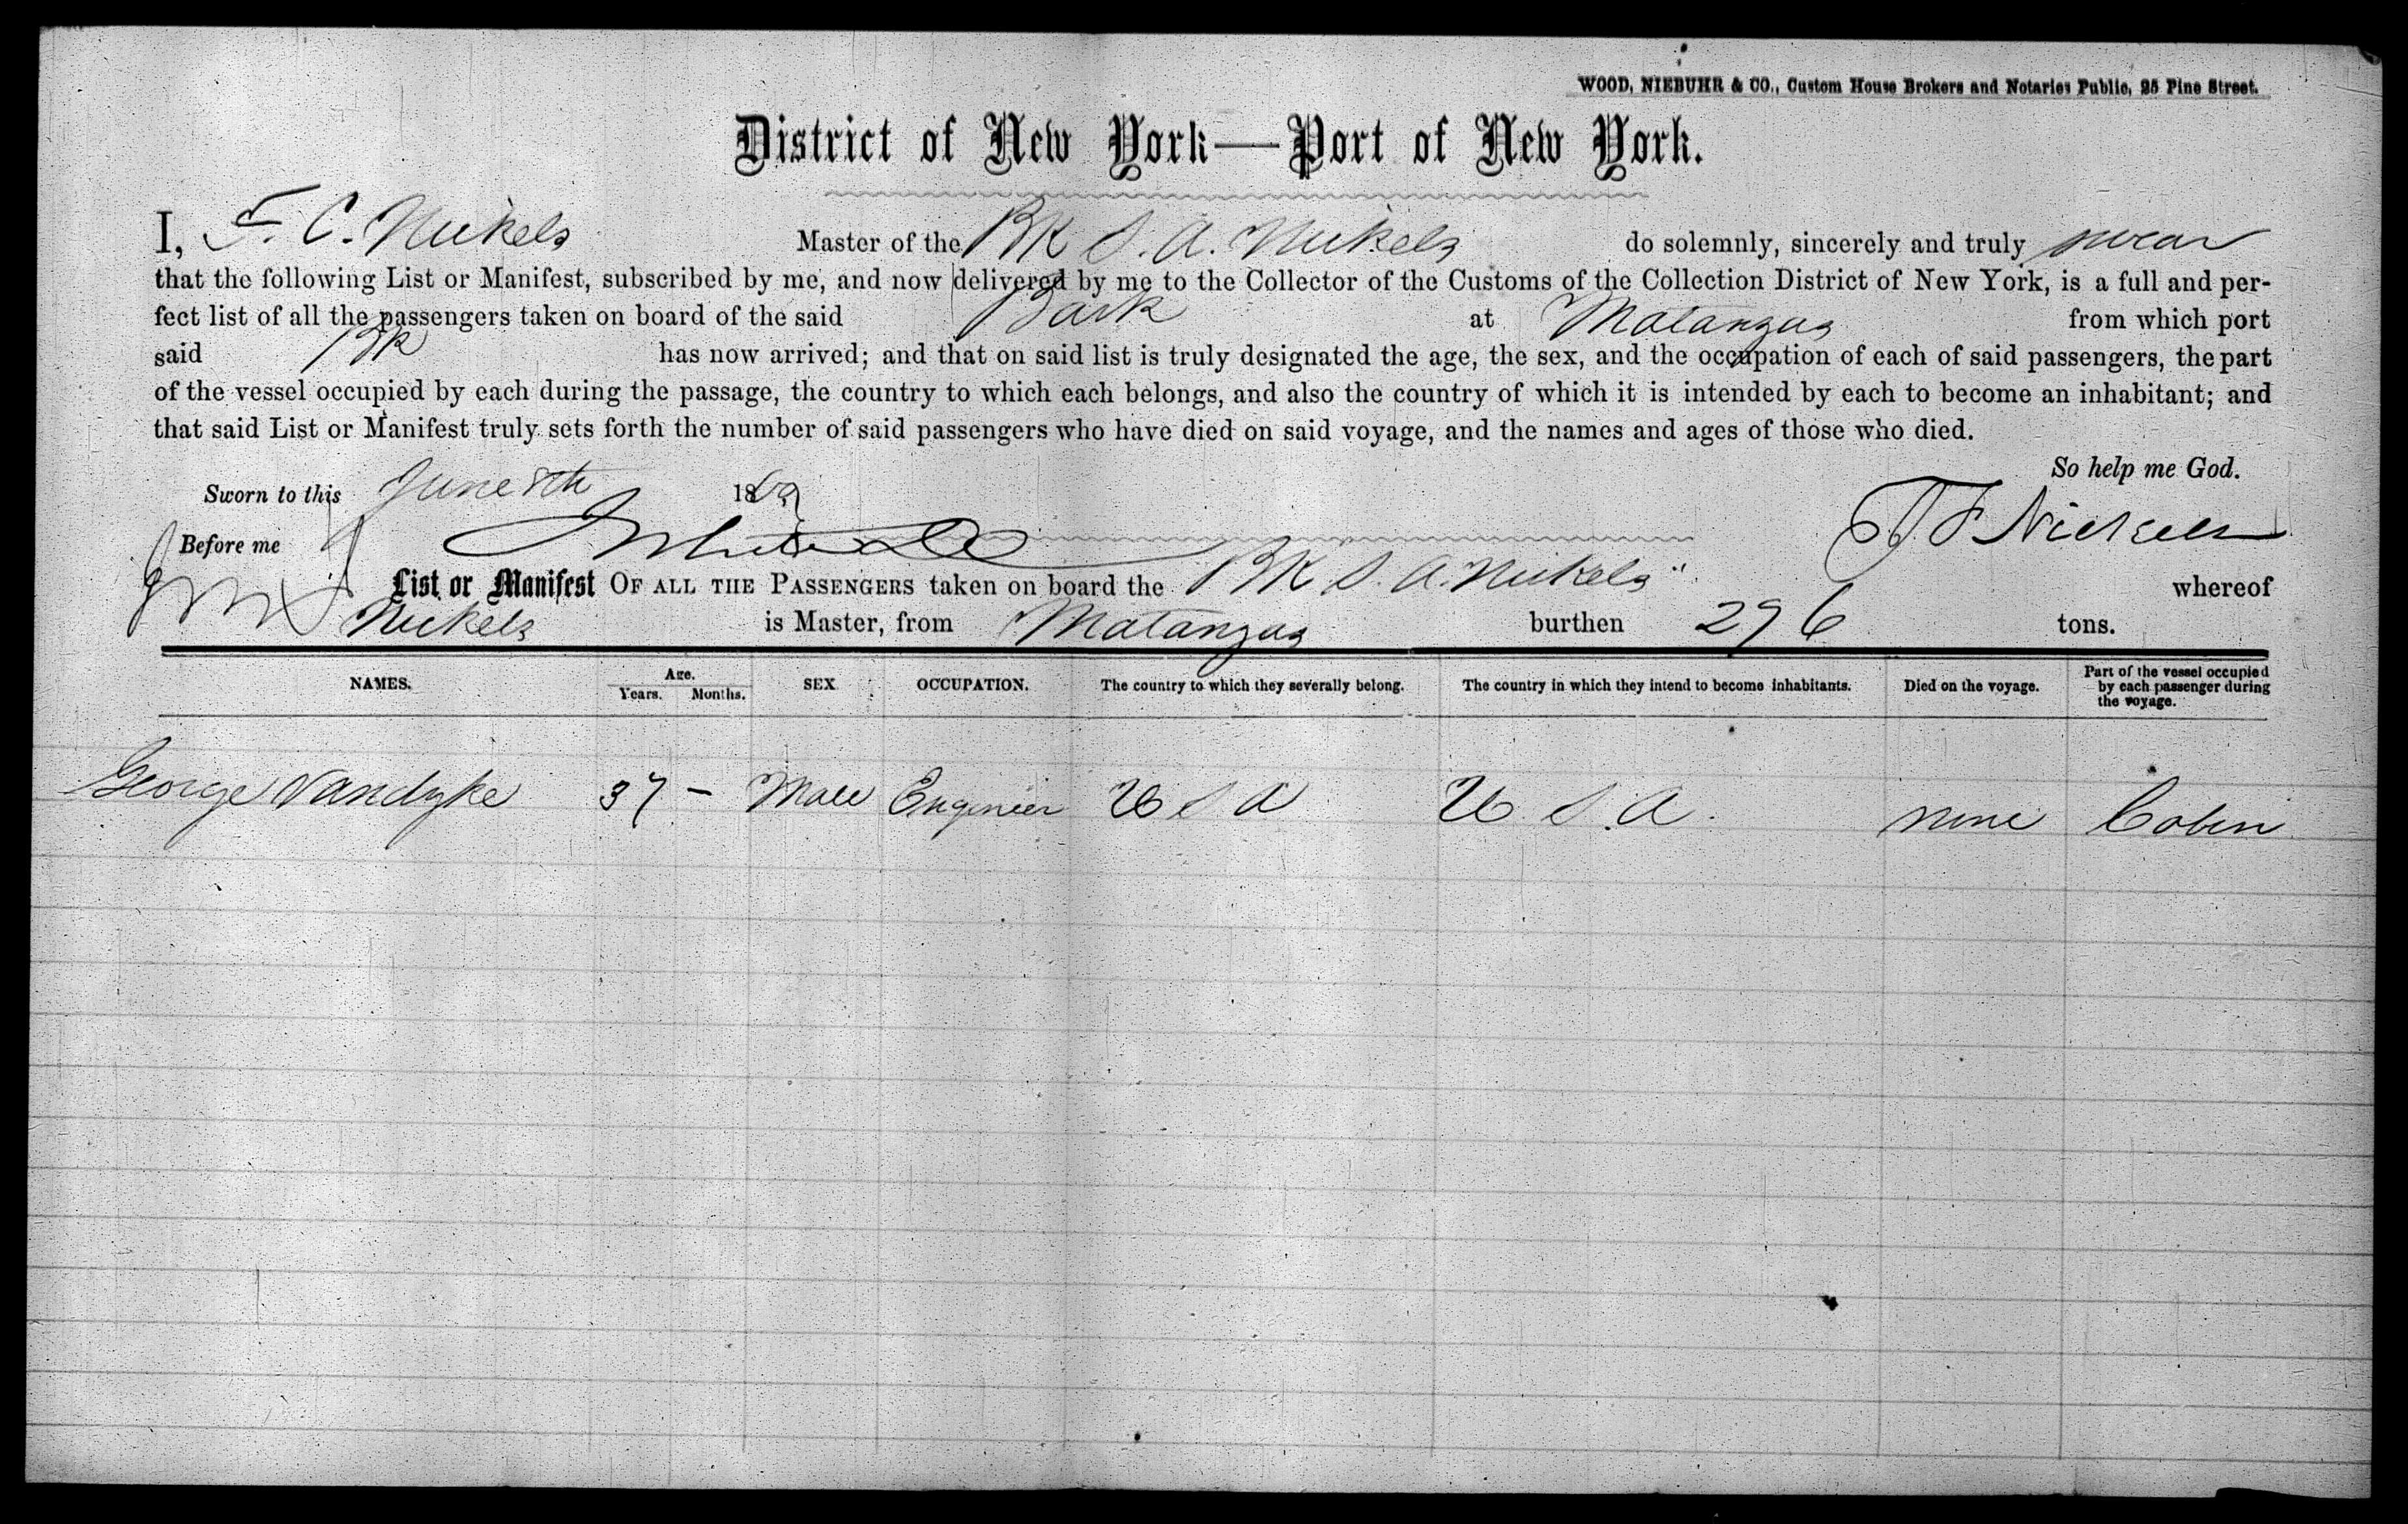 WOOD, NIEBUHR & CO., Custom House Brokers and Notaries Public, 25 Pine Street.
District of New York—Port of New York.
I, F. C. Nickels Master of the BK S. A. Nickels do solemnly, sincerely and truly swear
that the following List or Manifest, subscribed by me, and now delivered by me to the Collector of the Customs of the Collection District of New York, is a full and per-
fect list of all the passengers taken on board of the said Bark at Matanzas from which port
said BK has now arrived; and that on said list is truly designated the age, the sex, and the occupation of each of said passengers, the part
of the vessel occupied by each during the passage, the country to which each belongs, and also the country of which it is intended by each to become an inhabitant; and
that said List or Manifest truly sets forth the number of said passengers who have died on said voyage, and the names and ages of those who died.
So help me God.
Sworn to this June 8th 1869
Before me Nickels
List or Manifest OF ALL THE PASSENGERS taken on board the BK S. A. Nickels" whereof
Nickels is Master, from Matanzas burthen 296 tons.
NAMES. Age. Years. Months. SEX. OCCUPATION. The country to which they severally belong. The country in which they intend to become inhabitants. Died on the voyage. Part of the vessel occupied by each passenger during the voyage.
George Vandyke 37 – Male Engineer U S A U. S. A. none Cabin